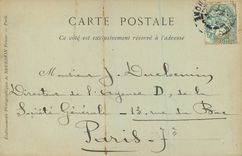 CARTE POSTALE
Ce côté est exclusivement réservé à l'adresse
Monsieur J. Duchemin
Directeur de l'agence D, de la
Société Générale - 13, rue du Bac
Paris - 7e